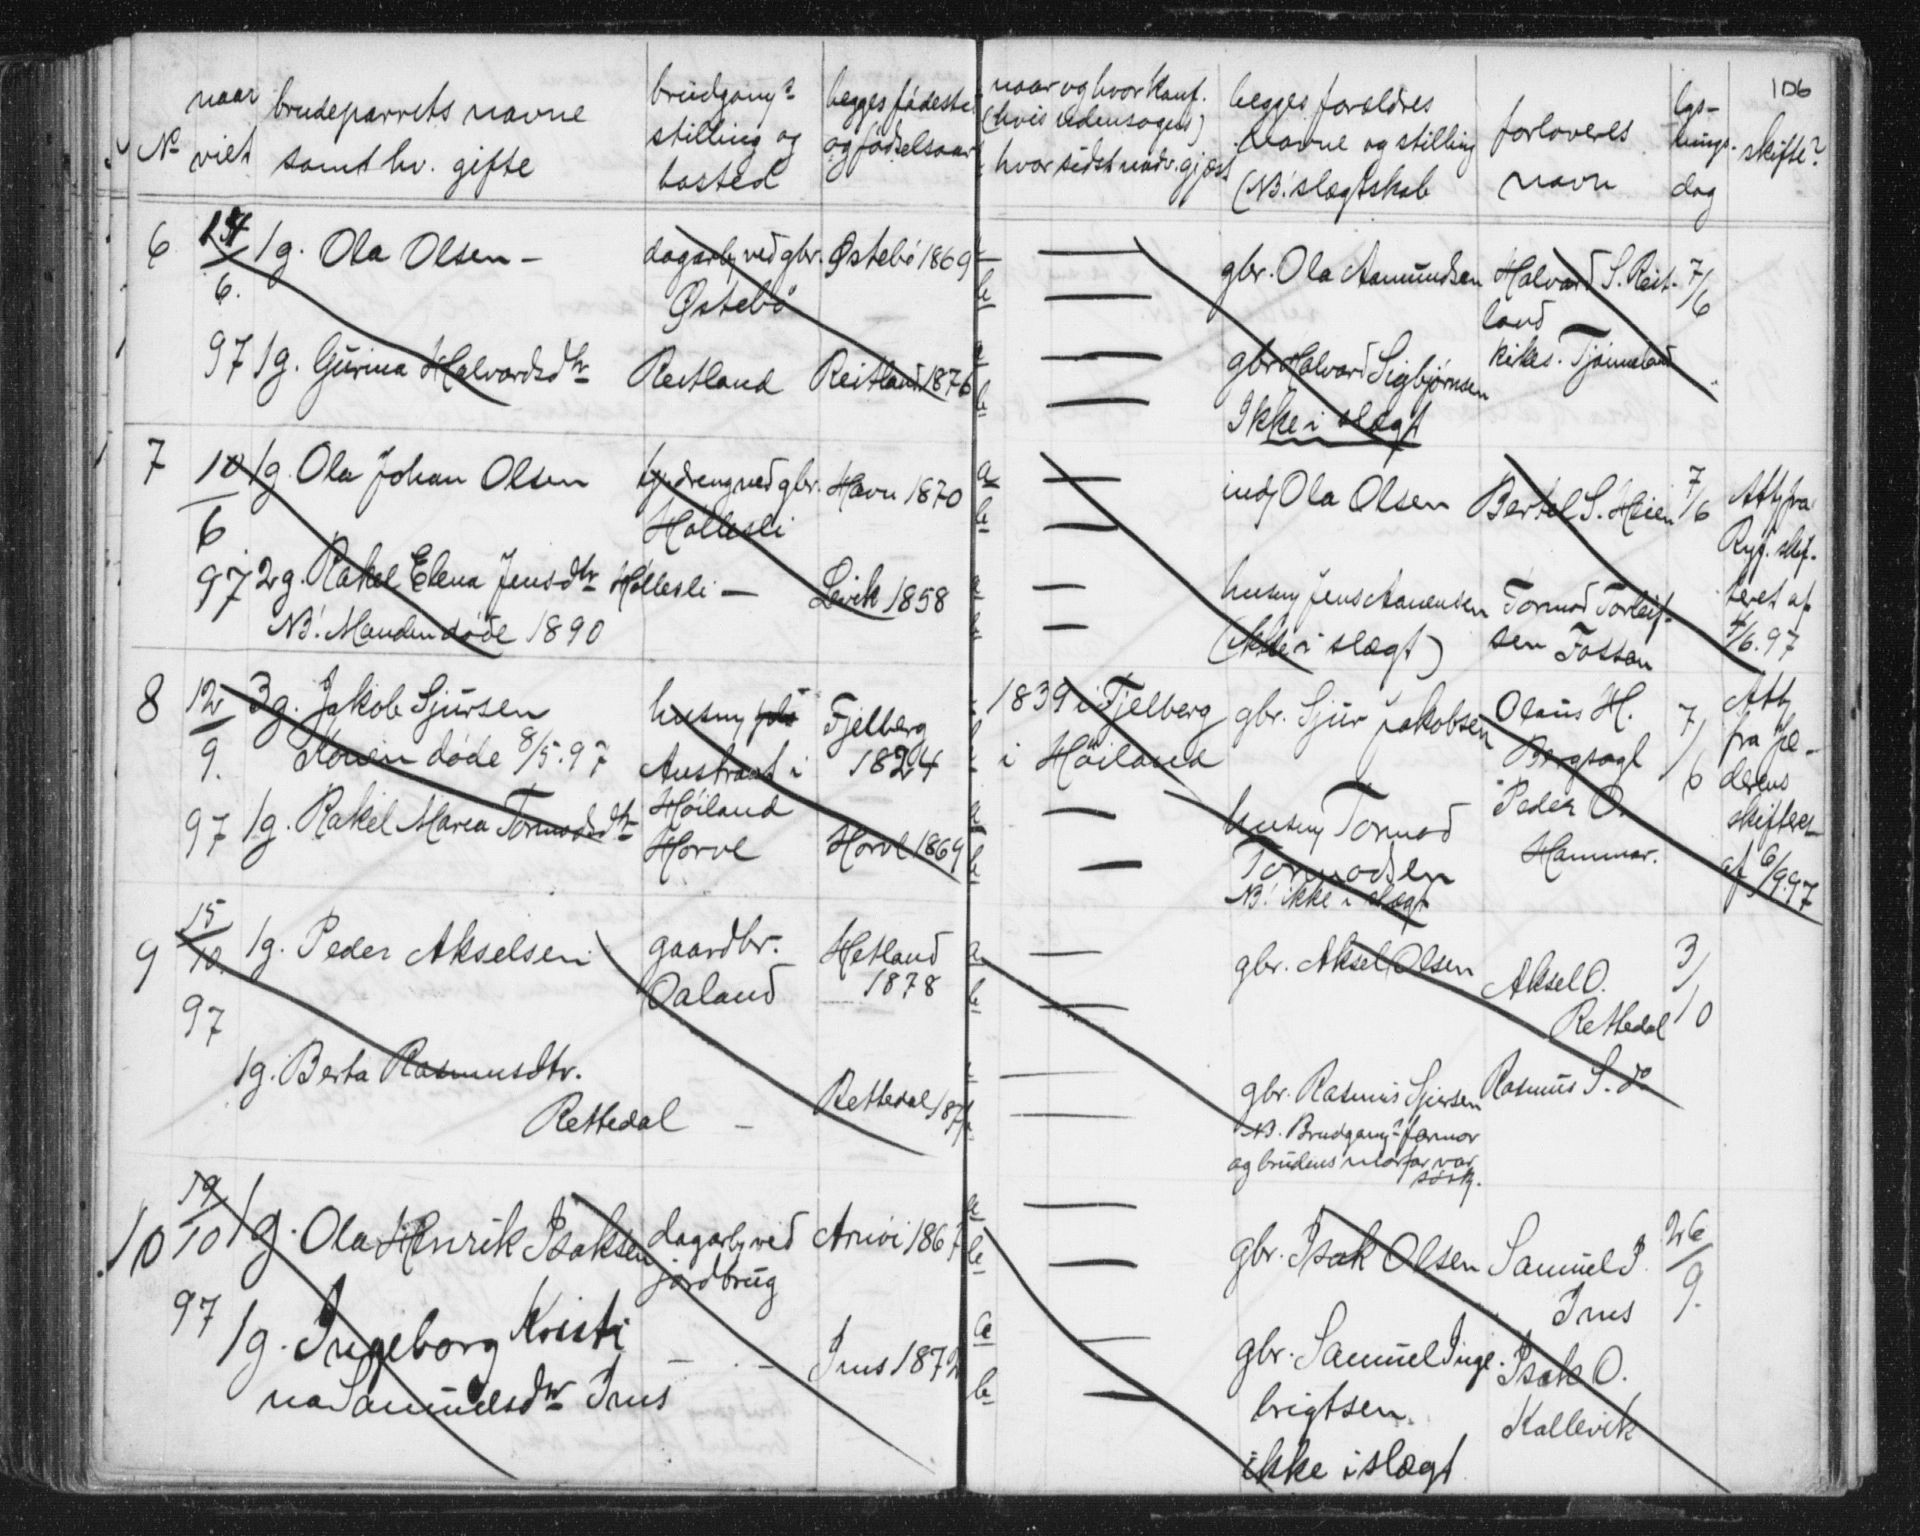 106
No
naar
viet
brudeparrets navne
samt hv. gifte
brudgoms
stilling og
bosted
begges fødested
og fødselsaar
naar og hvor konf.
(hvis udensogns)
hvor sidst nadv. gjæst
begges forældres
navne og stilling
(NB! slægtskab
forloveres
navn
lys-
nings-
dag
skifte?
6
6.
97
1g. Ola Olsen -
dagarb. ved gbr.
Østebø
Østebø 1869
a
b
gbr. Ola Aamundsen
Halvard S. Reit-
land
7/6
1g. Gurina Halvardsdtr
Reitland
Reitland 1876
a
b
gbr Halvard Sigbjørnsen
Ikke i slægt
kirkes. Tjörneland
7
10/6
97
1g. Ola Johan Olsen
ved gbr.
Hollesli
Havn 1870
a
b
inds Ola Olsen
Bertel S. Heien
7/6
Att. fra
Ryf. skif-
teret af
4/6.97
2g. Rakel Elena Jensdtr
Hollesli -
Levik 1858
NB! Manden døde 1890
husm Jens Aanensen
(Ikke i slægt)
Tormod Torleif-
sen Fossan
8
12/9.
97
3g. Jakob Sjursen
Konen døde 8/5.97
husm
Austraat i
Höiland
Fjelberg
1824
1839 i Fjelberg
i Höiland
gbr. Sjur Jakobsen
Olaus H.
Bergsagl
7/6
Att
fra fje-
derens
skifteret
af 6/9.97
1g. Rakel Maria Tormodsdtr
Horve
Horve 1869
a
b
husm Tormod
Tormodsen
NB! ikke i slægt
Peder O.
Hammer.
9
15/10.
97
1g. Peder Akselsen
gaardbr.
Oaland
Hetland
1878
a
b
gbr. Aksel Olsen
Aksel O.
Rettedal
3/10
1g. Berta Rasmusdtr.
Rettedal -
Rettedal
gbr. Rasmus Sjursen
NB. Brudgoms farmor
og brudens morfar var
søsk.
Rasmus S. do
10
19/10
97
1g. Ola Henrik Isaksen
dagarb. ved
jordbrug
Arnøi 1867
a
b
gbr. Isak Olsen
Samuel I.
Ims
26/9.
1g. Ingeborg Kristi
na Samuelsdtr Ims
- . -
Ims 1872
a
b
gbr. Samuel Inge-
brigtsen.
ikke i slægt
Isak O.
Kallevik